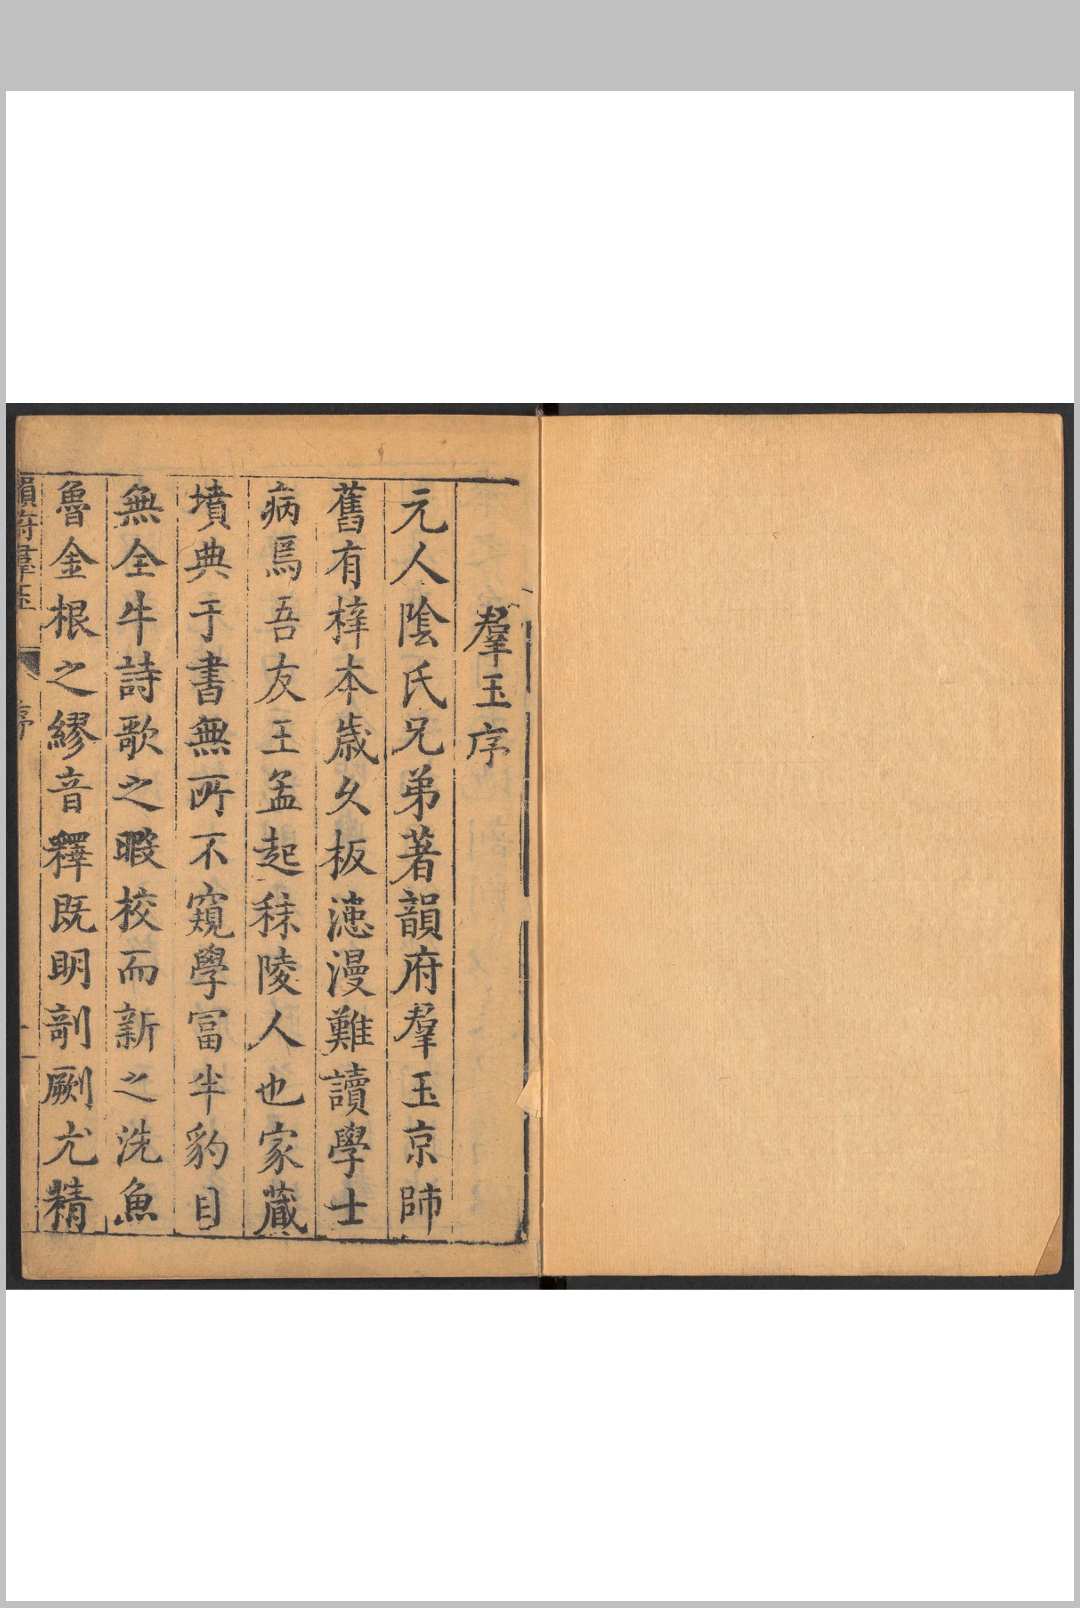 羣玉序
元人陰氏兄弟著韻府羣玉京師
舊有梓本歲久板漶漫難讀學士
病焉吾友王孟起秣陵人也家藏
墳典于書無所不窺學冨半豹目
無全牛詩歌之暇校而新之洗魚
魯金根之繆音釋既明剞劂尤精
韻府羣玉
序